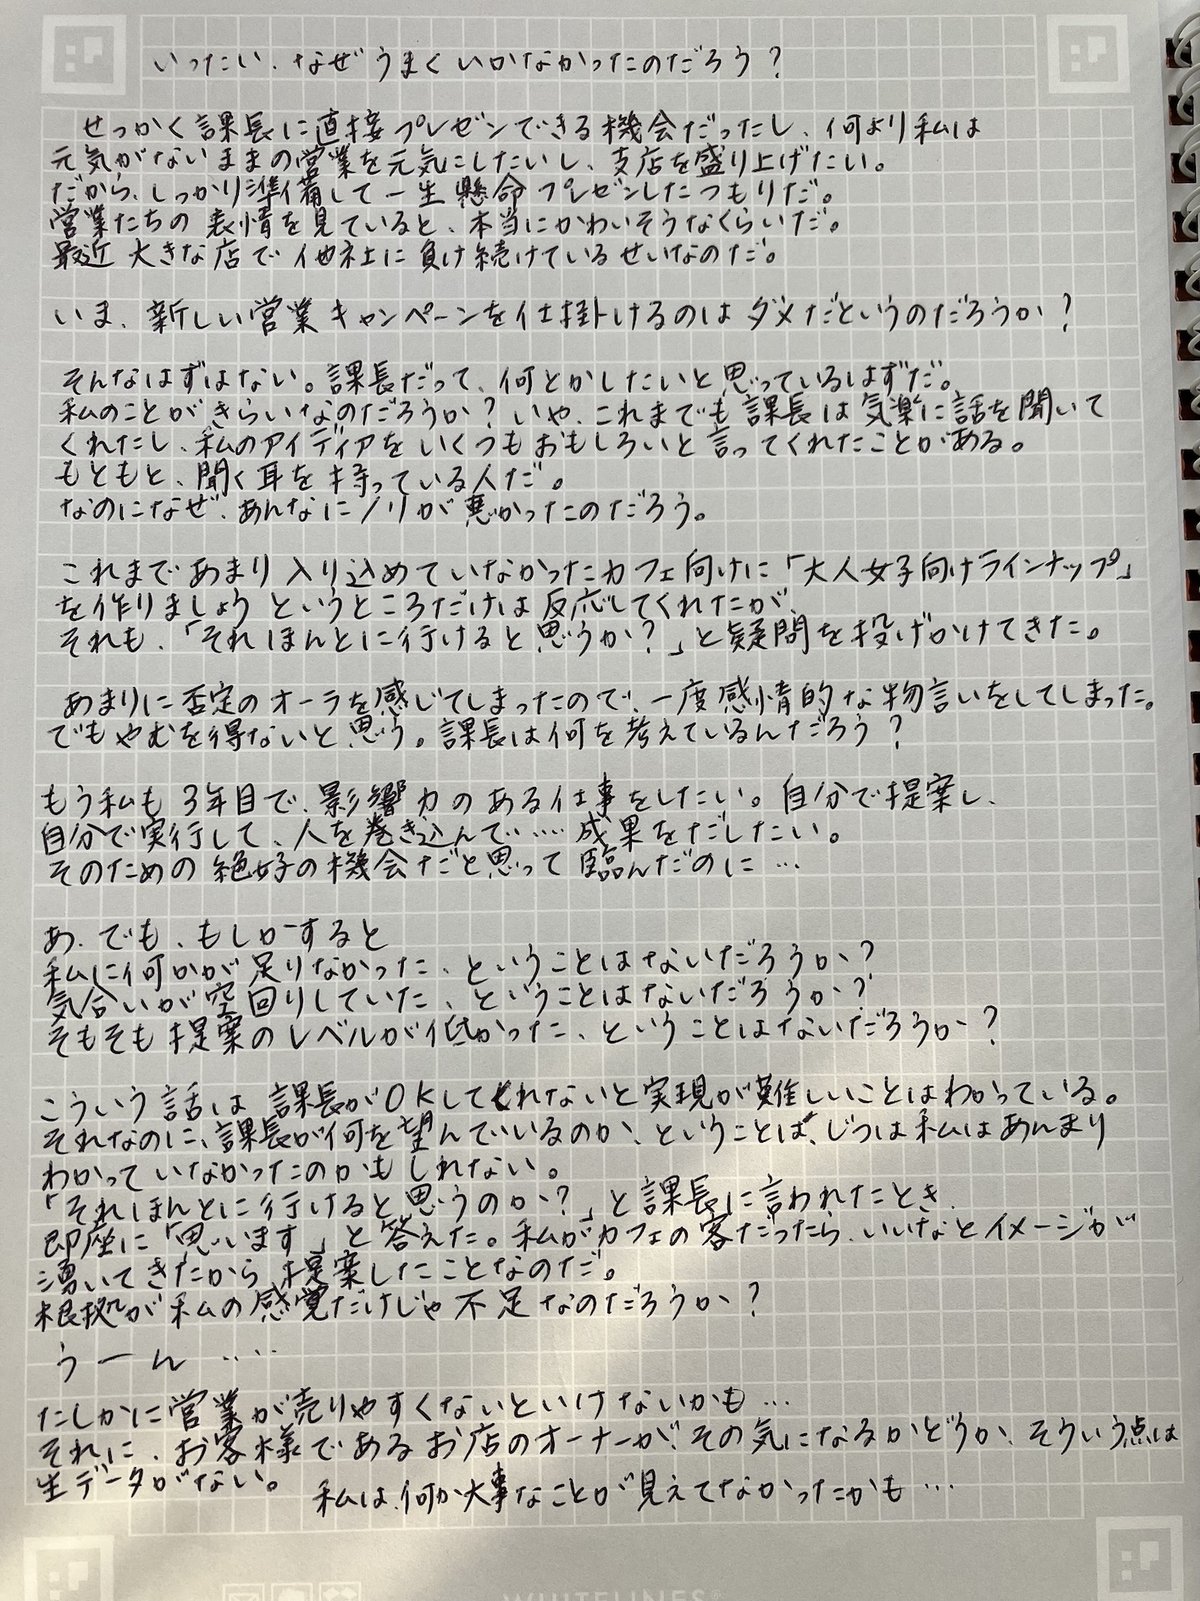 いったい、なぜうまくいかなかったのだろう？
せっかく課長に直接プレゼンできる機会だったし、何より私は
元気がないままの営業を元気にしたいし、支店を盛り上げたい。
だから、しっかり準備して一生懸命プレゼンしたつもりだ。
営業たちの表情を見ていると、本当にかわいそうなくらいだ。
最近大きな店で他社に負け続けているせいなのだ。
いま、新しい営業キャンペーンを仕掛けるのはダメだというのだろうか？
そんなはずはない。課長だって、何とかしたいと思っているはずだ。
私のことがきらいなのだろうか？いや、これまでも課長は気楽に話を聞いて
くれたし、私のアイディアをいくつもおもしろいと言ってくれたことがある。
もともと、聞く耳を持っている人だ。
なのになぜ、あんなにノリが悪かったのだろう。
これまであまり入り込めていなかったカフェ向けに「大人女子向けラインナップ」
を作りましょうというところだけは反応してくれたが、
それも、「それほんとに行けると思うか？」と疑問を投げかけてきた。
あまりに否定のオーラを感じてしまったので、一度感情的な物言いをしてしまった。
でもやむを得ないと思う。課長は何を考えているんだろう？
もう私も3年目で、影響力のある仕事をしたい。自分で提案し、
自分で実行して、人を巻き込んで……成果をだしたい。
そのための絶好の機会だと思って臨んだのに…
あ、でも、もしかーすると
私に何かが足りなかった、ということはないだろうか？
気合いが空回りしていた、ということはないだろうか？
そもそも提案のレベルが低かった、ということはないだろうか？
こういう話は課長がOKしてくれないと実現が難しいことはわかっている。
それなのに、課長が何を望んでいるのか、ということは、じつは私はあんまり
わかっていなかったのかもしれない。
「それほんとに行けると思うのか？」と課長に言われたとき、
即座に「思います」と答えた。私がカフェの客だったら、いいなとイメージが
湧いてきたから提案したことなのだ。
根拠が私の感覚だけじゃ不足なのだろうか？
うーん‥‥
たしかに営業が売りやすくないといけないかも…
それに、お客様であるお店のオーナーが、その気になるかどうか、そういう点は
生データがない。
私は、何か大事なことが見えてなかったかも…
WHITELINES®